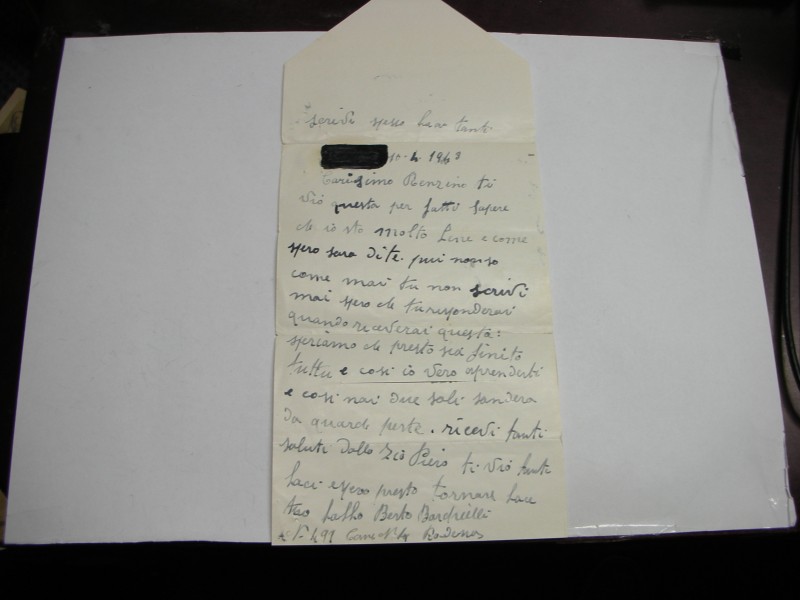 scrivi speso baci tanti
10-4 1943
Carissimo Renzino ti
vio questa per farti sapere
che io sto molto bene e come
spero sara dite. pui nonso
come mai tu non scrivi
mai spero che turisponderai
quando riceverai questa:
speriamo che presto sia finito
tuttu e cosi io vero aprenderti
e cosi noi due soli
da qualche parte. ricevi tanti
saluti dallo zio Piero ti vio tanti
baci espero presto tornare
tuo babbo Berto